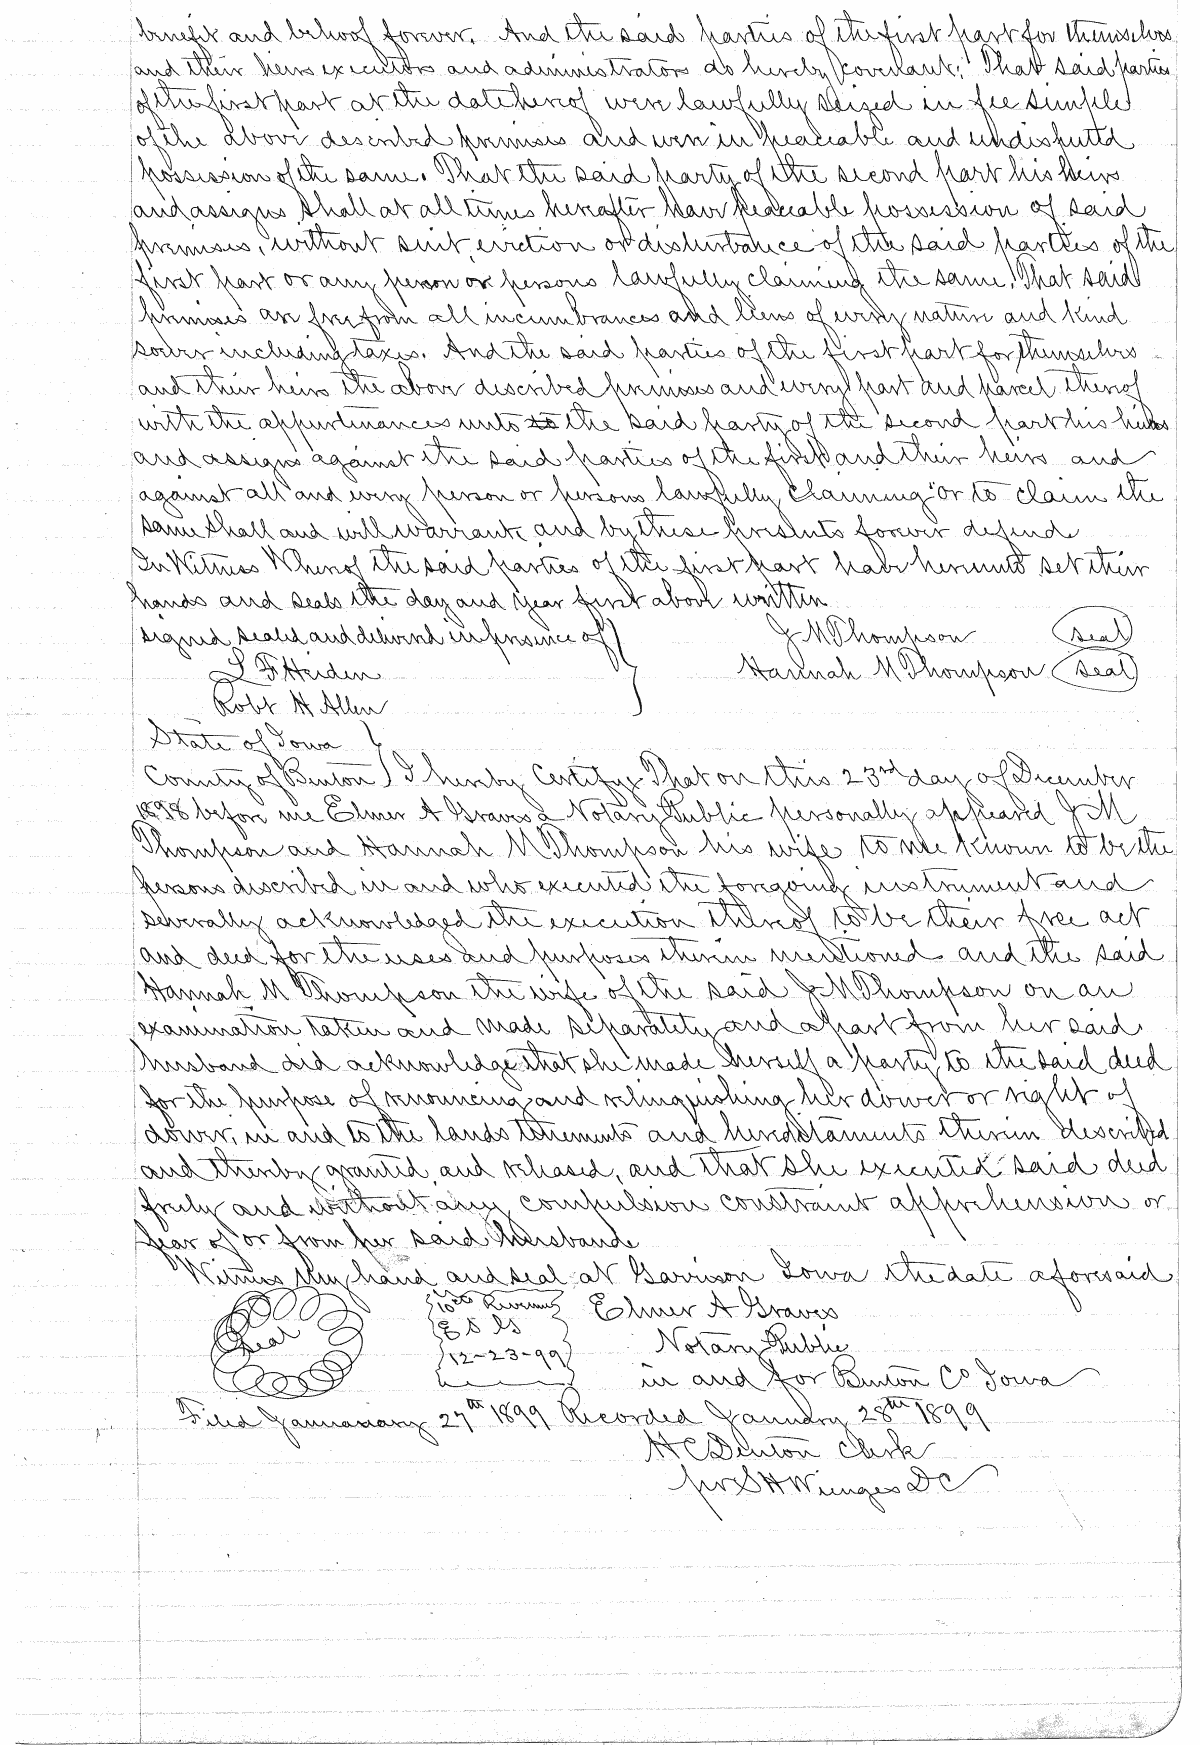 benefit and behoof forever. And the said parties of the first part for themselves
and their heirs executors and administrators do hereby covenant; That said parties
of the first part at the date hereof were lawfully seized in fee simple
of the above described premises and were in peaceable and undisputed
possession of the same. That the said party of the second part his heirs
and assigns shall at all times hereafter have peaceable possession of said
premises, without suit, eviction or disturbance of the said parties of the
first part or any person or persons lawfully claiming the same. That said
premises are free from all incumbrances and liens of every nature and kind
soever including taxes. And the said parties of the first part for themselves
and their heirs the above described premises and every part and parcel thereof
with the appurtinances unto the said party of the second part his heirs
and assigns against the said parties of the first and their heirs and
against all and every person or persons lawfully claiming or to claim the
same shall and will warrant and by these presents forever defend
In Witness Whereof the said parties of the first part have hereunto set their
hands and seals the day and year first above written
signed sealed and delivered in presence of } J M Thompson (seal)
L F Heiden Hannah M Thompson (seal)
Robt H Allen
State of Iowa }
County of Benton } I hereby Certify That on this 23rd day of December
1898 before me Elmer A Graves a Notary Public personally appeared J M
Thompson and Hannah M Thompson his wife to me known to be the
persons described in and who executed the foregoing instrument and
severally acknowledged the execution thereof to be their free act
and deed for the uses and purposes therein mentioned and the said
Hannah M Thompson the wife of the said J M Thompson on an
examination taken and made separately and apart from her said
husband did acknowledge that she made herself a party to the said deed
for the purpose of renouncing and relinquishing her dower or right of
dower, in and to the lands tenements and hereditaments therein described
and thereby granted and released, and that she executed said deed
freely and without any compulsion constraint apprehension or
fear of or from her said husband
Witness my hand and seal at Garrison Iowa the date aforesaid
Seal 10cts Revenue Elmer A Graves
12-23-99 Notary Public
in and for Benton Co Iowa
Filed Jannauary 27th 1899 Recorded January 28th 1899
H C Denton Clerk
per S H Wienges D C